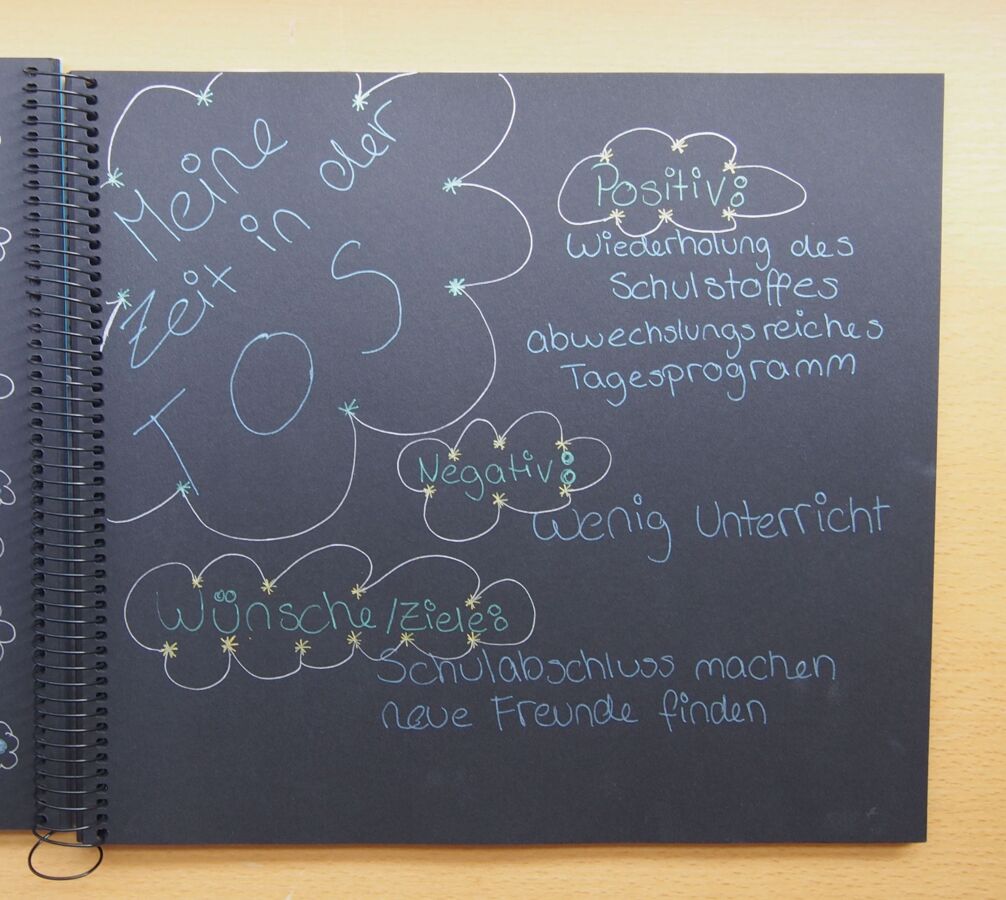 Meine
Zeit in der
TOS
Positiv:
Wiederholung des
Schulstoffes
abwechslungsreiches
Tagesprogramm
Negativ:
Wenig Unterricht
Wünsche/Ziele:
Schulabschluss machen
neue Freunde finden